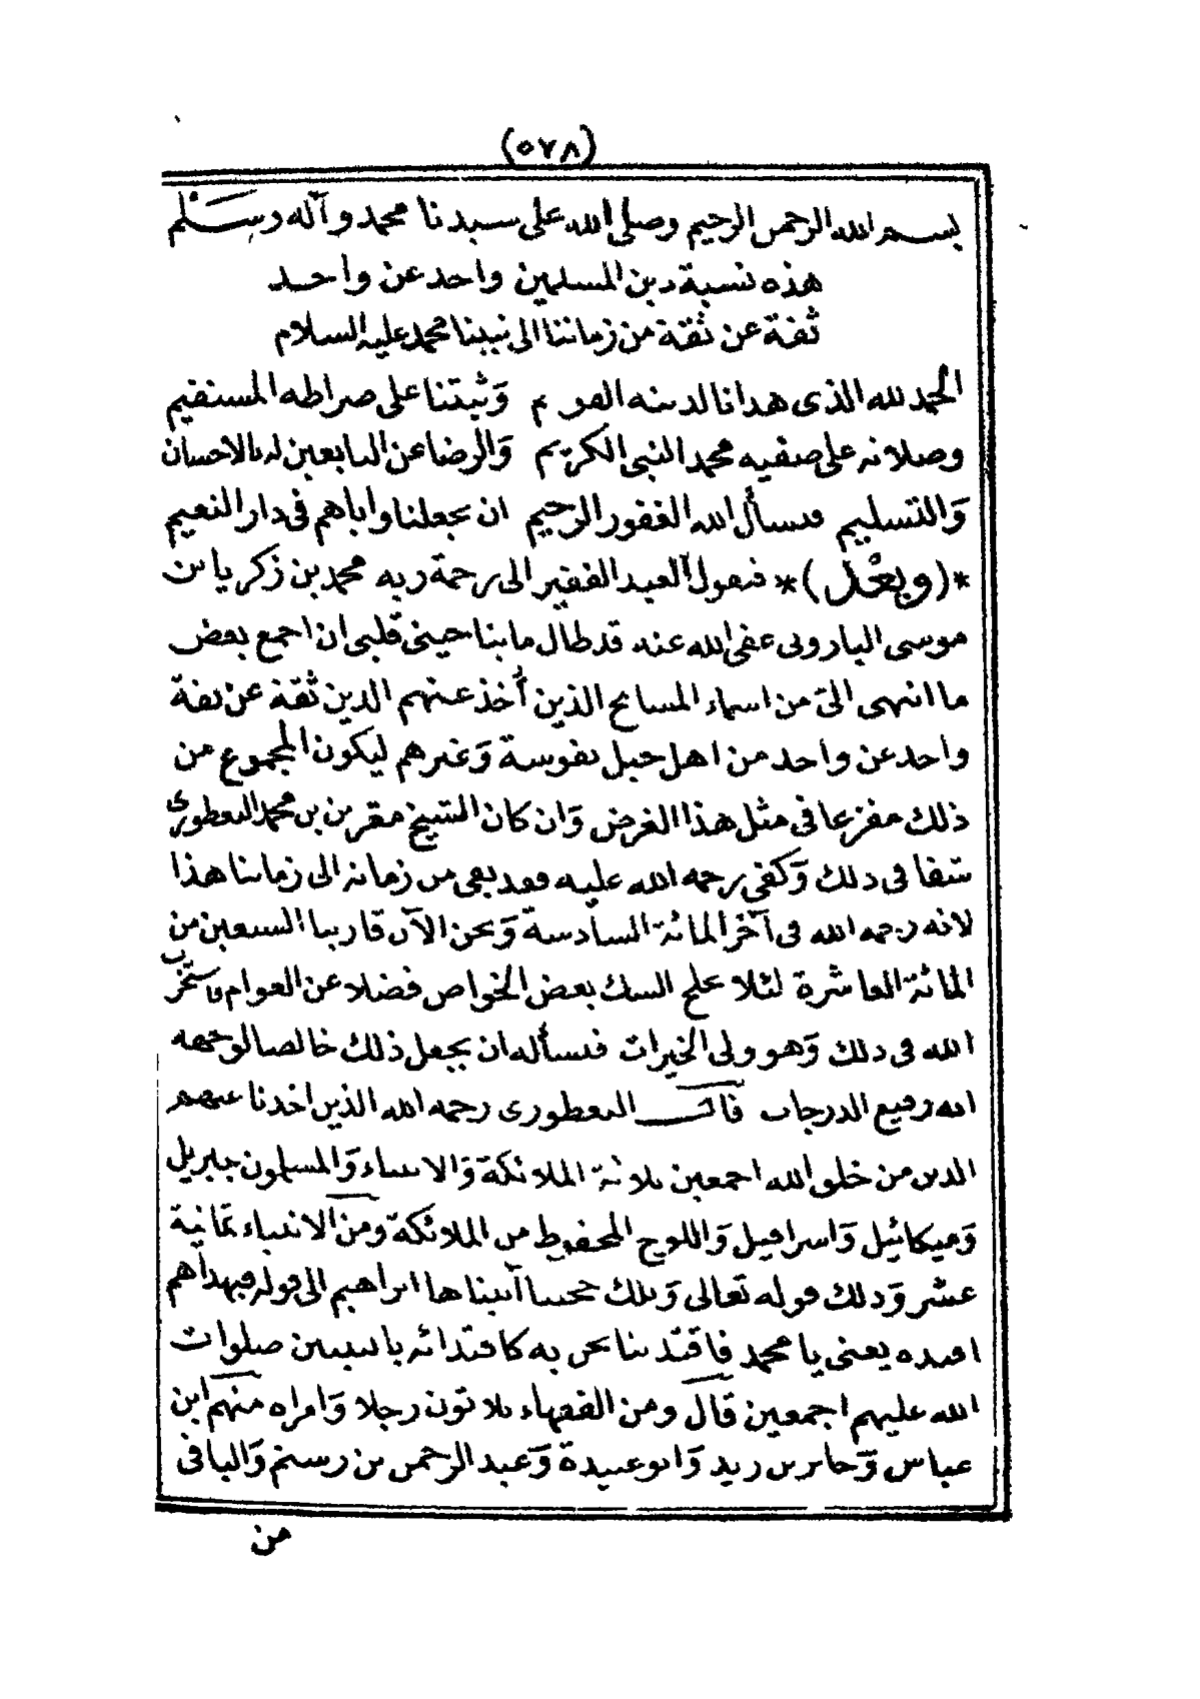 (٥٧٨)
بسم الله الرحمن الرحيم وصلى الله على سيدنا محمد وآله وسلم
هذه نسبة دين المسلمين واحد عن واحد
ثقة عن ثقة من زماننا الى نبينا محمد عليه السلام
الحمد لله الذى هدانا لدينه القويم وَثبتنا على صراطه المستقيم
وصلاته على صفيه محمد النبى الكريم وَالرضا عن التابعين له بالاحسان
وَالتسليم ونسأل الله الغفور الرحيم ان يجعلنا واياهم فى دار النعيم
*(وبعْد)* فيقول العبد الفقير الى رحمة ربه محمد بن زكريا بن
موسى البارونى عفى الله عنه قد طال ما يناجينى قلبى ان اجمع بعض
ما انتهى الىّ من اسماء المشايخ الذين أُخذ عنهم الدين ثقة عن ثقة
واحد عن واحد من اهل جبل نفوسة وَغيرهم ليكون المجموع من
ذلك مفزعا فى مثل هذا الغرض وَان كان الشيخ مقرين بن محمد البغطورى
شفا فى ذلك وَكفى رحمه الله عليه فقد بقى من زمانه الى زماننا هذا
لانه رحمه الله فى آخر المائة السادسة وَنحن الآن قاربنا السبعين من
المائة العاشرة لئلا يخلج الشك بعض الخواص فضلا عن العوام فاستخرت
الله فى ذلك وَهو ولى الخيرات فنسأله ان يجعل ذلك خالصا لوجهه
انه رفيع الدرجات قال البغطورى رحمه الله الذين اخذنا عنهم
الدين من خلق الله اجمعين ثلاثة الملائكة وَالانبياء وَالمسلمون جبريل
وَميكائيل وَاسرافيل وَاللوح المحفوظ من الملائكة ومن الانبياء ثمانية
عشر وَذلك قوله تعالى وَتلك حجتنا آتيناها ابراهيم الى قوله فبهداهم
اقتده يعنى يا محمد فاقتدينا نحن به كاقتدائه بالنبيين صلوات
الله عليهم اجمعين قال ومن الفقهاء ثلاثون رجلا وَامراه منهم ابن
عباس وَجابر بن زيد وَابو عبيدة وَعبد الرحمن بن رستم وَالباقى
من